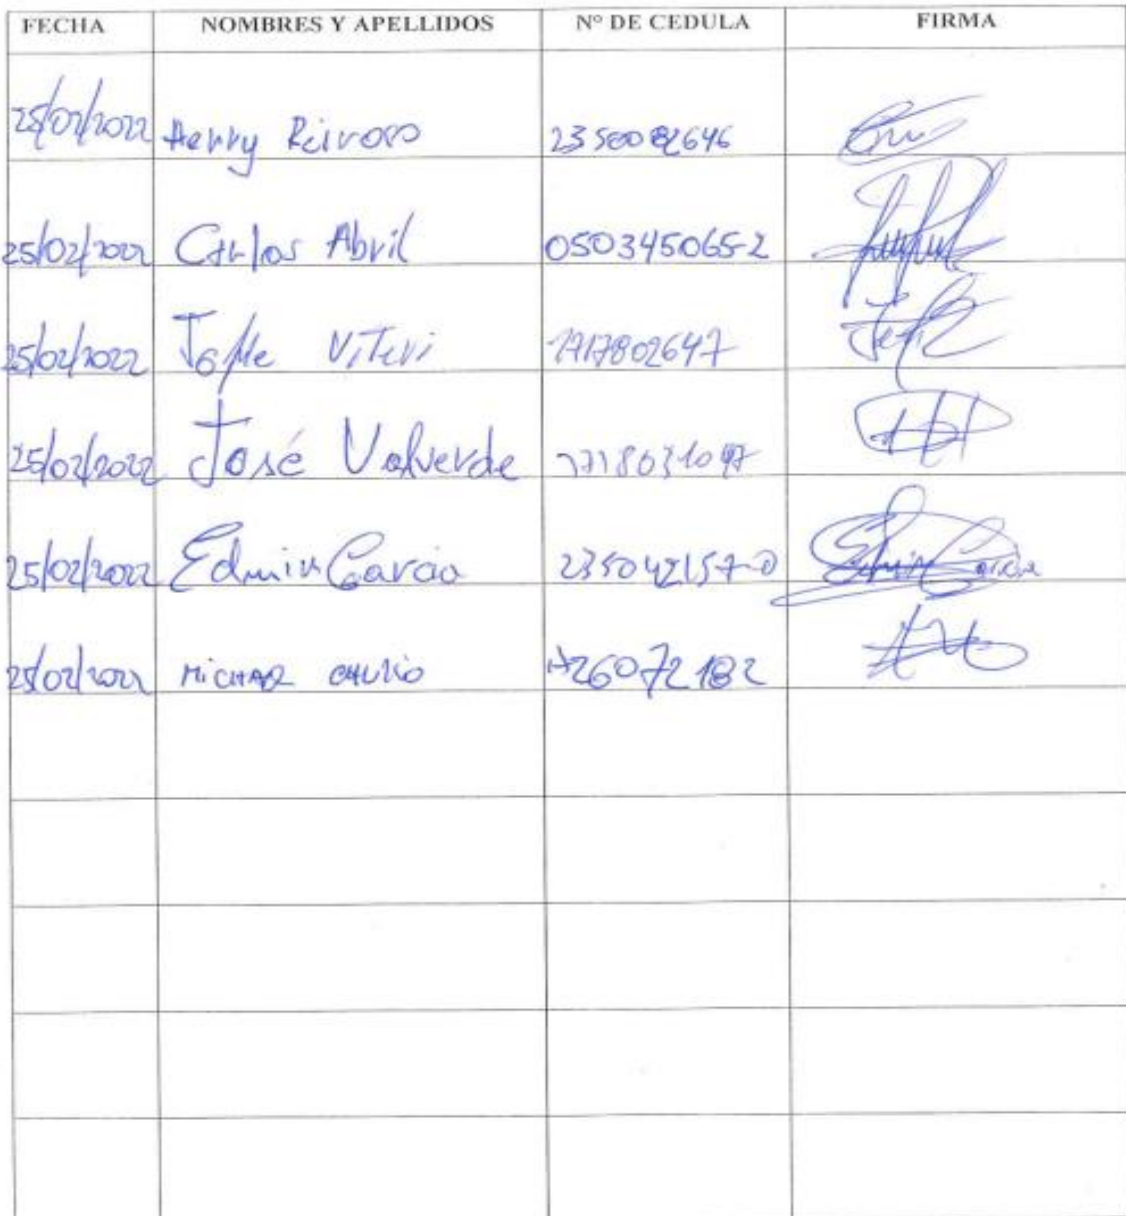 FECHA NOMBRES Y APELLIDOS N° DE CEDULA FIRMA
25/02/2022 Henry Reinoso 2350082646
25/02/2022 Carlos Abril 050345065-2
25/02/2022 Viteri 1717802647
25/02/2022 José Valverde
25/02/2022 Edwin Garcia 235042157-0 Edwin Garcia
25/02/2022